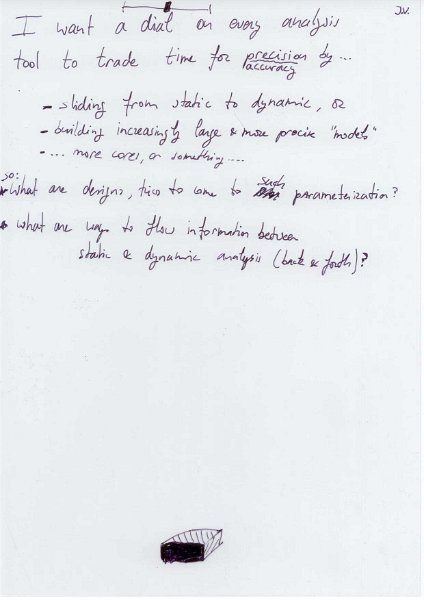 J.V.
I want a dial on every analysis
tool to trade time for precision by ...
accuracy
- sliding from static to dynamic, or
- building increasingly large & more precise "models"
- ... more cores, or something ....
so:
• What are designs, tricks to come to such parameterization?
• what are ways to flow information between
static & dynamic analysis (back & forth)?